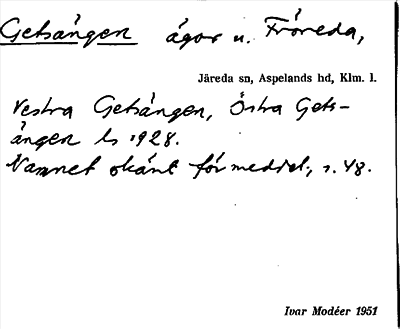 Getsängen ägor u. Fröreda,
Järeda sn, Aspelands hd, Klm. l.
Vestra Getsängen, Östra Gets-
ängen ls 1928.
Namnet okänt för meddel., s. 48.
Ivar Modéer 1951